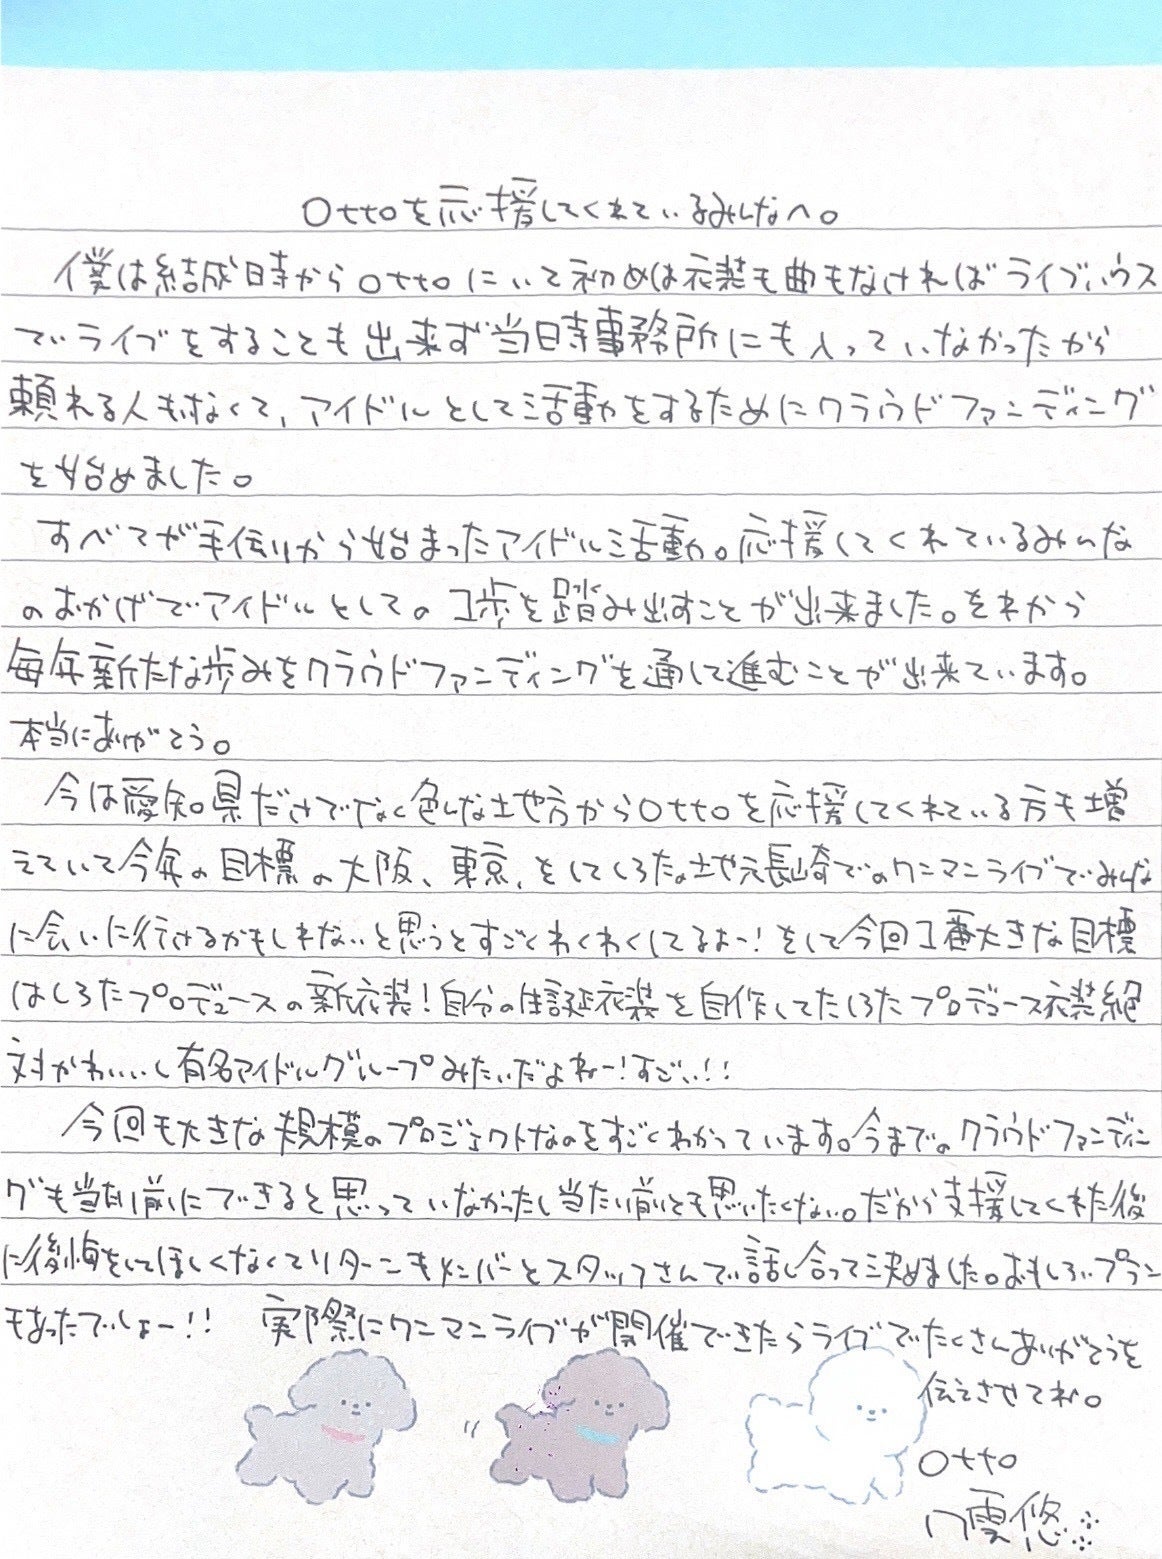 Ottoを応援してくれているみんなへ。
僕は結成時からottoにいて初めは衣装も曲もなければライブハウス
でライブをすることも出来ず当時事務所にも入っていなかったから
頼れる人もいなくて、アイドルとして活動をするためにクラウドファンディング
を始めました。
すべてが手伝いから始まったアイドル活動。応援してくれているみんな
のおかげでアイドルとしての1歩を踏み出すことが出来ました。それから
毎年新たな歩みをクラウドファンディングを通して進むことが出来ています。
本当にありがとう。
今は愛知県だけでなく色んな地方からOttoを応援してくれている方も増
えていて今年の目標の大阪、東京、そしてしろたの地元長崎でのワンマンライブでみんな
に会いに行けるかもしれないと思うとすごくわくわくしてるよー!そして今回1番大きな目標
はしろたプロデュースの新衣装!自分の生誕衣装を自作してたしろたプロデュース衣装絶
対かわいいし有名アイドルグループみたいだよねー!すごい!!
今回も大きな規模のプロジェクトなのをすごくわかっています。今までのクラウドファンディン
グも当たり前にできると思っていなかったし当たり前とも思いたくない。だから支援してくれた後
に後悔をしてほしくなくてリターンもメンバーとスタッフさんで話し合って決めました。おもしろいプラン
もあったでしょー!! 実際にワンマンライブが開催できたらライブでたくさんありがとうを
伝えさせてね。
Otto
雲悠